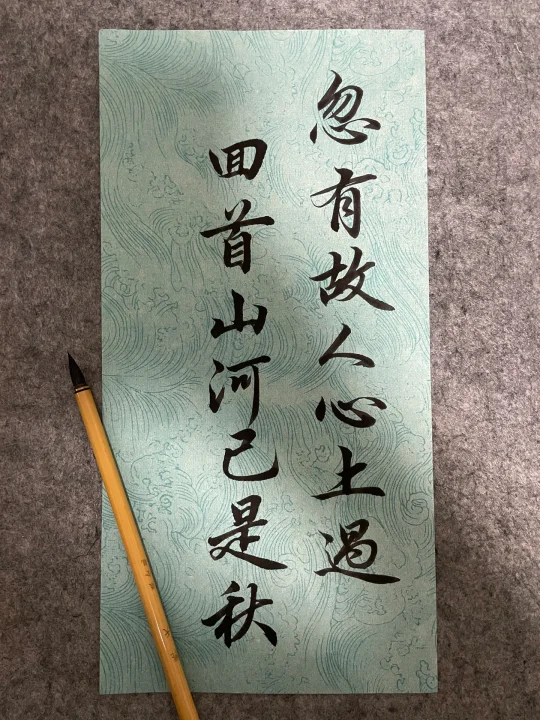 忽有故人心上过
回首山河已是秋